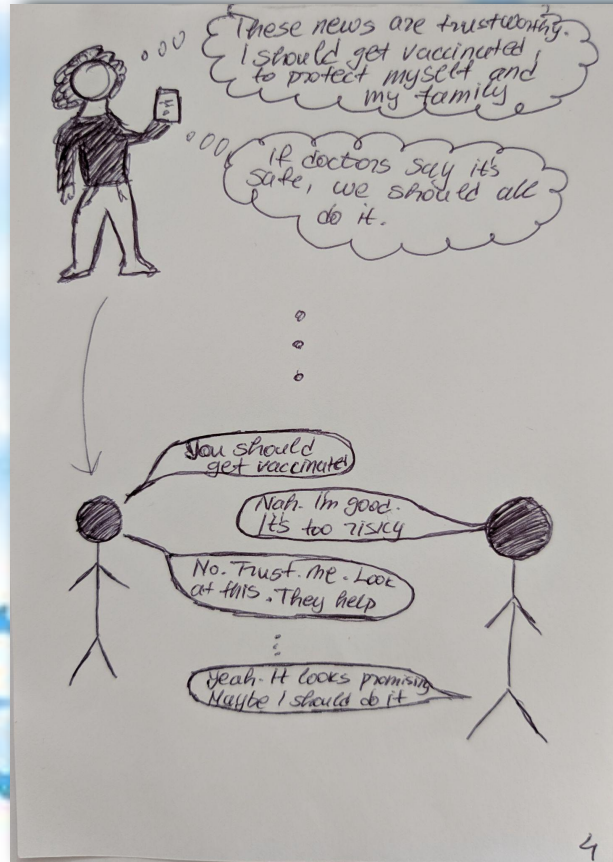 These news are trustworthy.
I should get vaccinated,
to protect myself and
my family
if doctors say it's
safe, we should all
do it.
You should
get vaccinated
Nah. I'm good.
It's too risky
No. Trust. me. Look
at this. They help
Yeah. It looks promising
Maybe I should do it
4